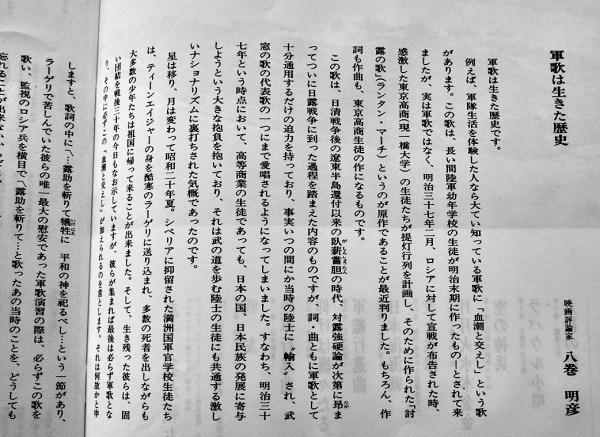 軍歌は生きた歴史
映画評論家 八巻 明彦
軍歌は生きた歴史です。
例えば、軍隊生活を体験した人なら大てい知っている軍歌に「血潮と交えし」という歌
があります。この歌は、長い間陸軍幼年学校の生徒が明治末期に作ったもの―とされて来
ましたが、実は軍歌ではなく、明治三十七年二月、ロシアに対して宣戦が布告された時、
感激した東京高商(現一橋大学)の生徒たちが提灯行列を計画し、そのために作られた「討
露の歌」(ランタン・マーチ)というのが原作であることが最近判りました。もちろん、作
詞も作曲も、東京高商生徒の作になるものです。
この歌は、日清戦争後の遼東半島還付以来の臥薪嘗胆の時代、対露強硬論が次第に昂ま
ってついに日露戦争に到った過程を踏まえた内容のものですが、詞・曲ともに軍歌として
十分通用するだけの迫力を持っており、事実いつの間にか当時の陸士に〝輸入〟され、武
窓の歌の代表歌の一つにまで愛唱されるようになってしまいました。すなわち、明治三十
七年という時点において、高等商業の生徒であっても、日本の国、日本民族の発展に寄与
しようという大きな抱負を抱いており、それは武の道を歩む陸士の生徒にも共通する激し
いナショナリズムに裏打ちされた気概であったのです。
星は移り、月は変わって昭和二十年夏。シベリアに抑留された満洲国軍官学校生徒たち
は、ティーンエイジャーの身を酷寒のラーゲリに送り込まれ、多数の死者を出しながらも
大多数の少年たちは祖国に帰って来ることが出来ました。そして、生き残った彼らは、固
い団結を戦後三十年の今日もなお示していますが、彼らが集まれば最後は必らず軍歌とな
り、その中に必ずこの「血潮と交えし」が加えられるのを常とします。それは何故かと申
しますと、歌詞の中に〽…露助を斬りて犠牲に 平和の神を祀るべし…という一節があり、
ラーゲリで苦しんでいた彼らの唯一最大の慰安であった軍歌演習の際は、必らずこの歌を
歌い、監視のロシア兵を横目で〽露助を斬りて…と歌ったあの当時のことを、どうしても